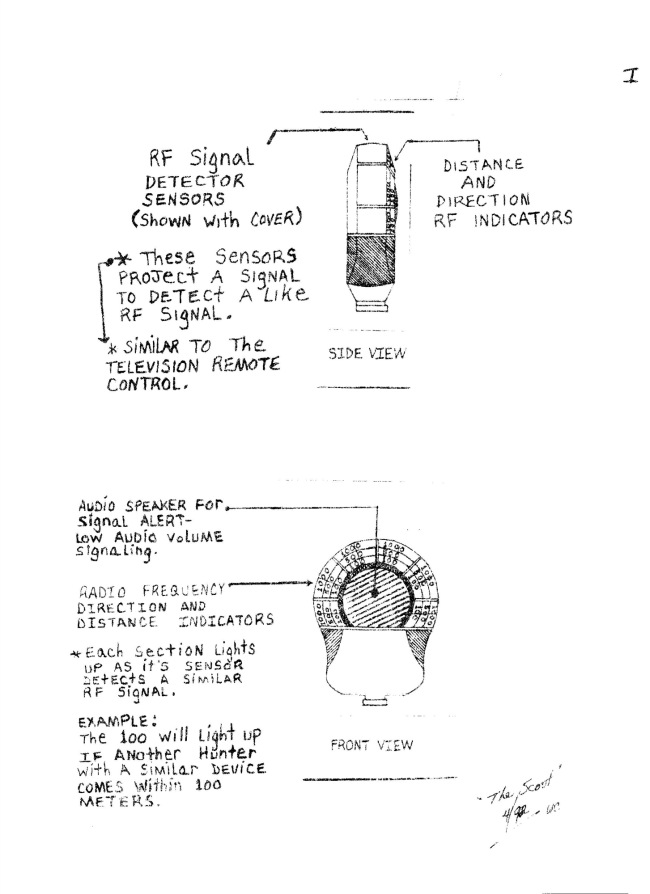 I
RF Signal
DETECTOR
SENSORS
(SHOWN With COVER)
* These SENSORS
PROJECT A SIGNAL
TO DETECT A Like
RF SIGNAL.
* SIMILAR TO The
TELEVISION REMOTE
CONTROL.
DISTANCE
AND
DIRECTION
RF INDICATORS
SIDE VIEW
AUDIO SPEAKER FOR
Signal ALERT-
LOW AUDIO VOLUME
SIgnaLing.
RADIO FREQUENCY
DIRECTION AND
DISTANCE INDICATORS
* Each Section Lights
UP AS it's SENSOR
DETECTS A SIMILAR
RF SIGNAL.
EXAMPLE:
The 100 Will Light up
IF ANother Hunter
With A Similar DEVICE
COMES Within 100
METERS.
1000 1000 1000 1000 1000
500
100 100 100
FRONT VIEW
"The Scout"
4/92